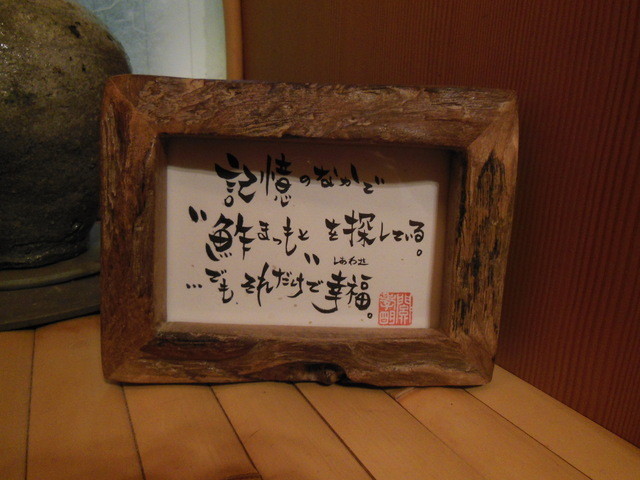 記憶のなかで
"鮓まつもと"を探している。
しあわせ
…でも、それだけで幸福。